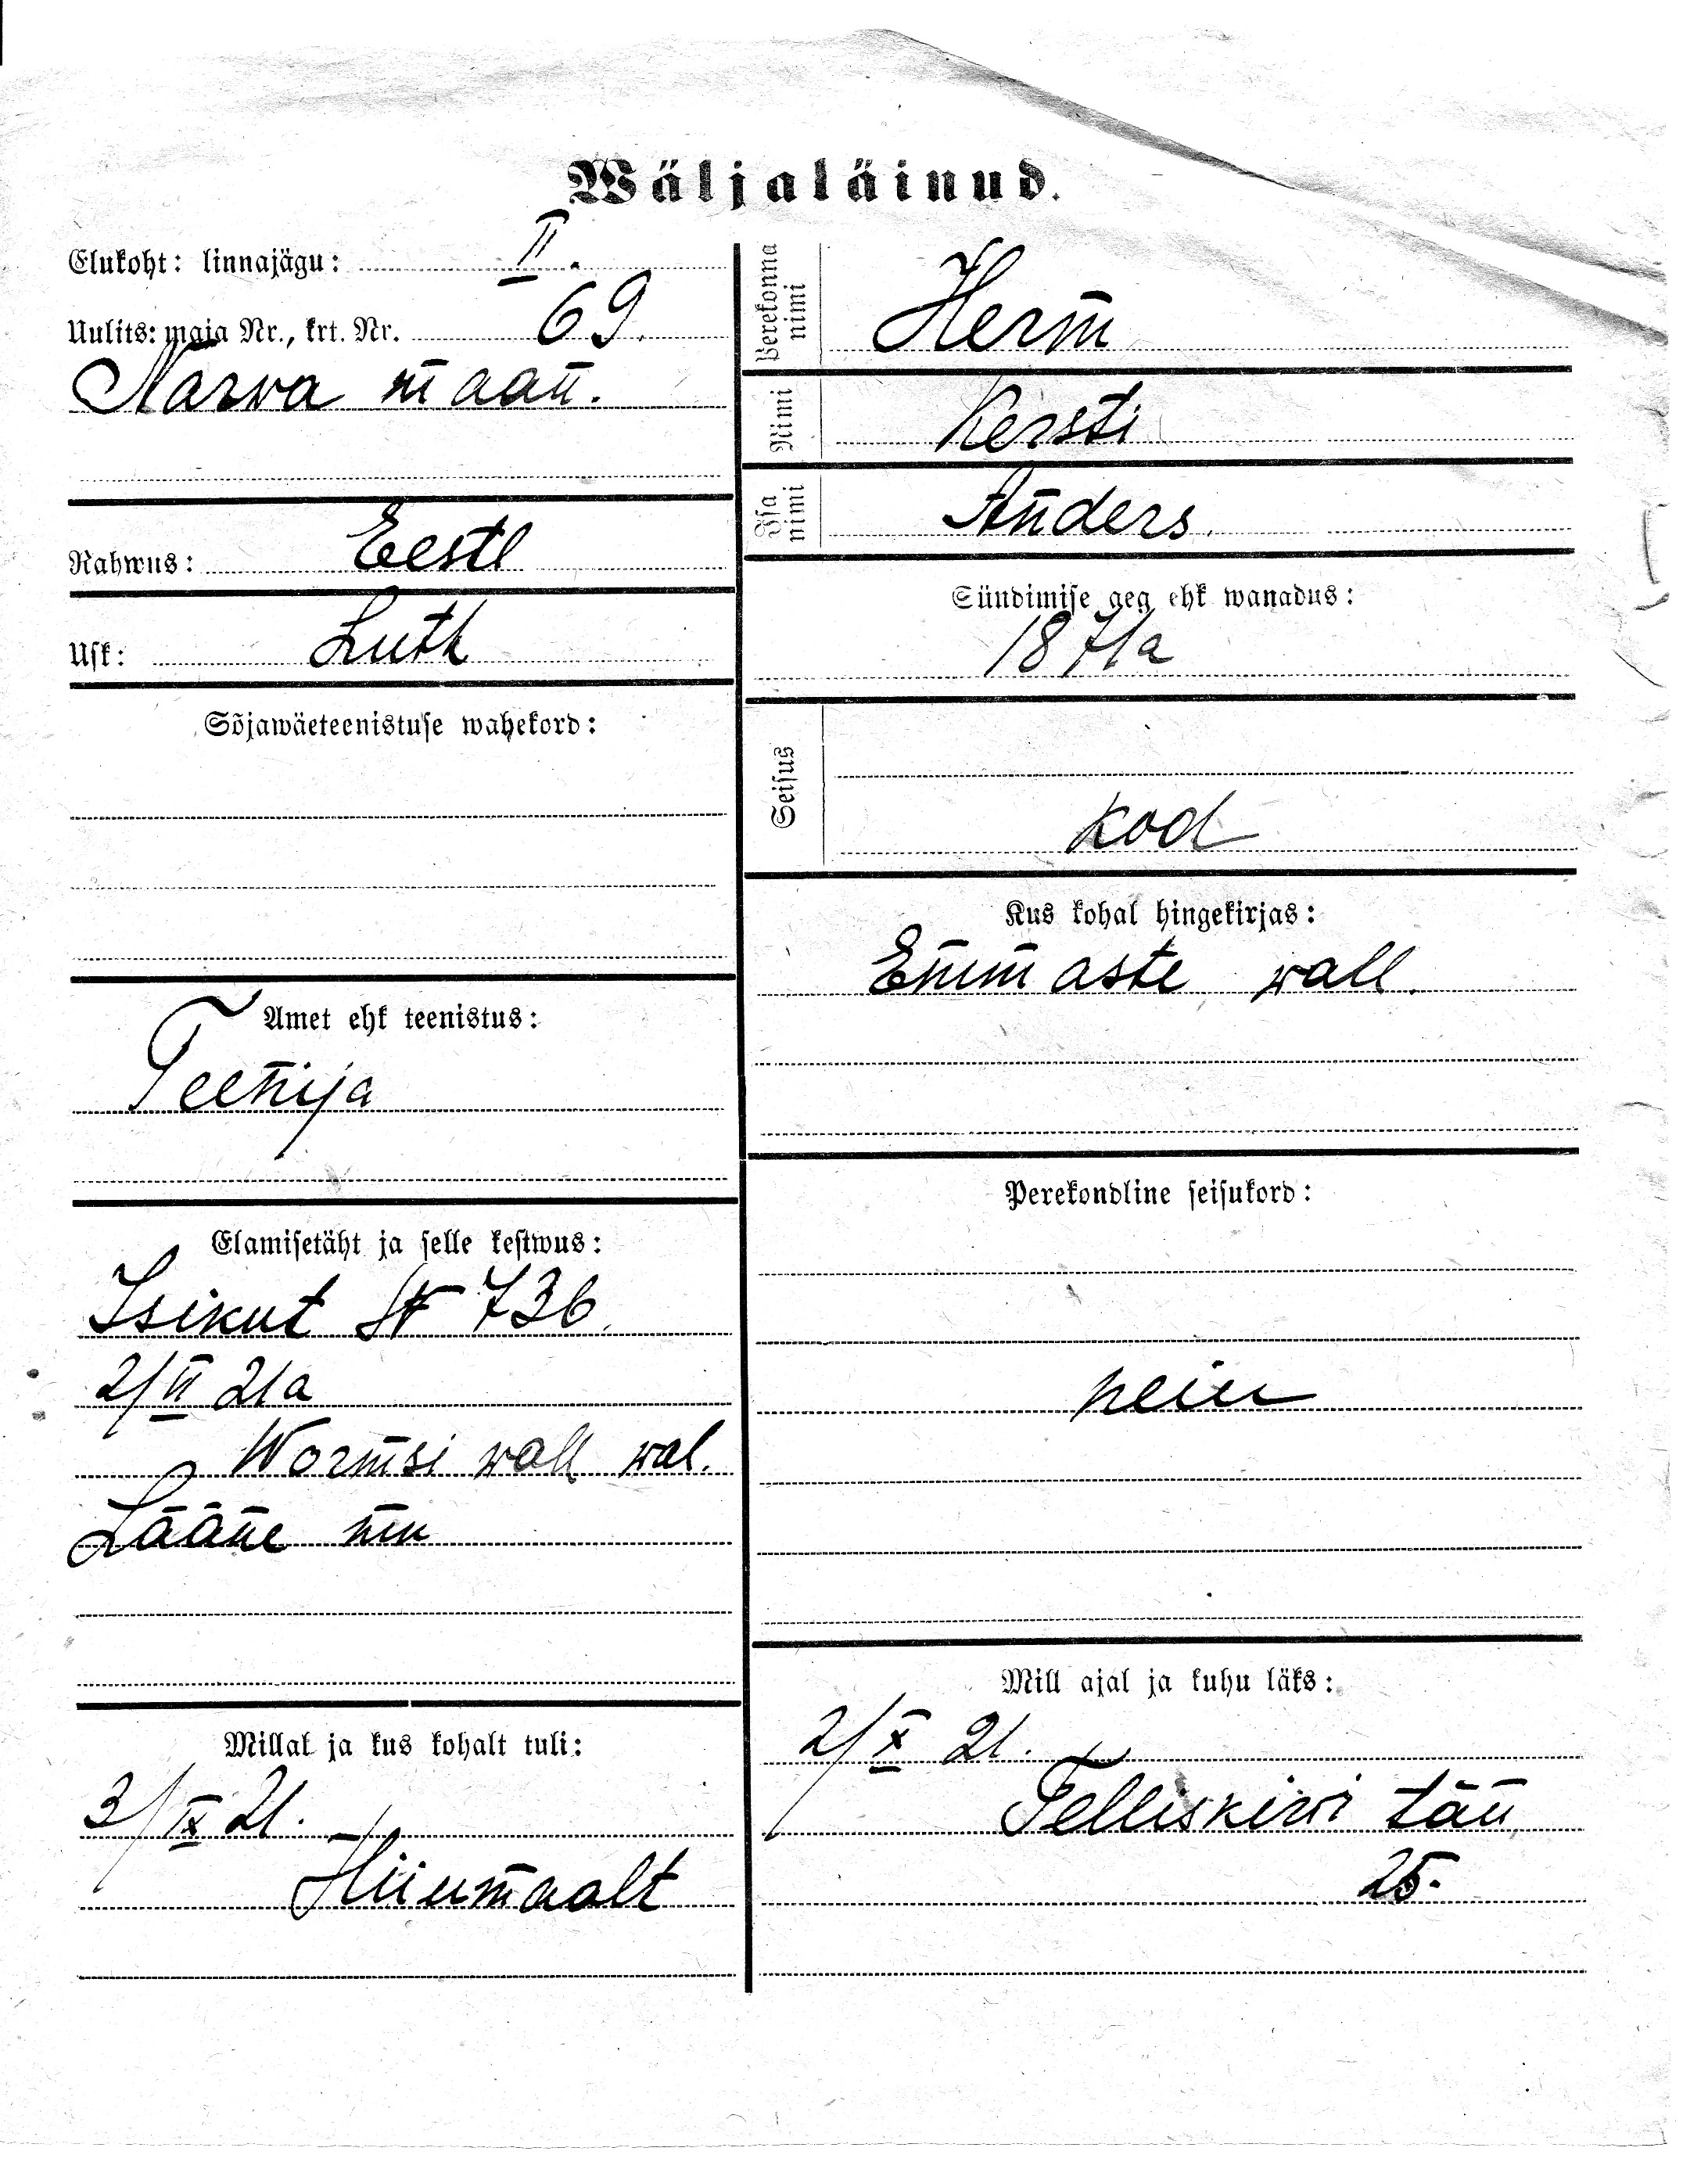 Wäljaläinud.
Elukoht: linnajägu: II.
Uulits: maja Nr., krt. Nr. 69.
Narwa maan.
Rahwus: Eestl
Usk: Luth
Sõjawäeteenistuse wahekord:
Amet ehk teenistus:
Teenija
Elamisetäht ja selle kestwus:
Isikut № 736.
2/VI 21a
Wormsi wall wal.
Lääne mn
Millal ja kus kohalt tuli:
3/IX 21.
Hiiumaalt
Perekonna nimi
Herm
Nimi
Kersti
Isa nimi
Anders.
Sündimise aeg ehk wanadus:
1871a
Seisus
kod
Kus kohal hingekirjas:
Emmaste wall.
Perekondline seisukord:
neiu
Mill ajal ja kuhu läks:
2/X 21.
Telliskiwi tän
25.